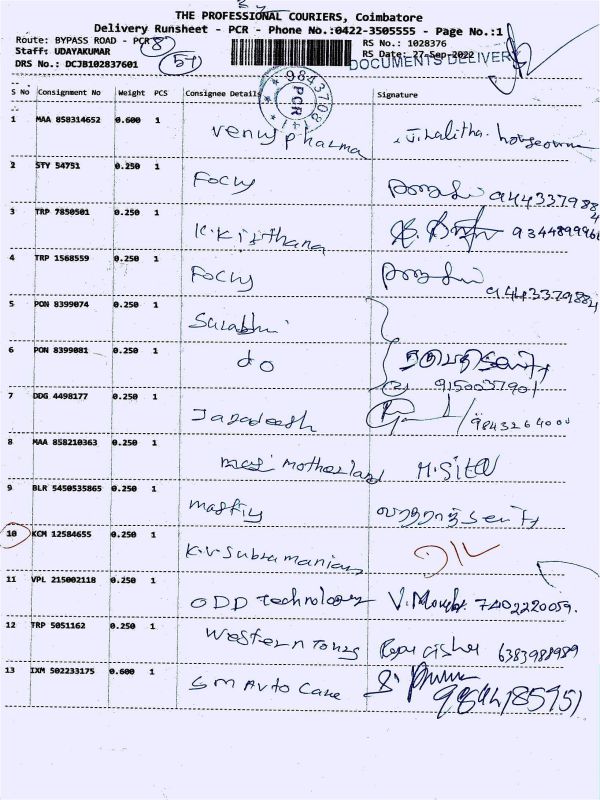 THE PROFESSIONAL COURIERS, Coimbatore
Delivery Runsheet - PCR - Phone No.:0422-3505555 - Page No.:1
Route: BYPASS ROAD - PCR 8
RS No.: 1028376
Staff: UDAYAKUMAR
RS Date: 27-Sep-2022
DRS No.: DCJB102837601
DOCUMENTS DELIVERY
9843708
PCR
S No Consignment No Weight PCS Consignee Details Signature
1 MAA 858314652 0.600 1 Venuy pharma J. Lalitha.
2 STY 54751 0.250 1 Focuy 9443379884
3 TRP 7850501 0.250 1 K. Kirthana 934489996
4 TRP 1568559 0.250 1 Focuy 9443379884
5 PON 8399074 0.250 1 Surabhi
6 PON 8399081 0.250 1 do
9150037901
7 DDG 4498177 0.250 1 Jagadeesh 984326400
8 MAA 858210363 0.250 1 Motherland M. Sita
9 BLR 5450535865 0.250 1
10 KCM 12584655 0.250 1 K.V. Subramaniam
11 VPL 215002118 0.250 1 ODD technology V. 7402220059.
12 TRP 5051162 0.250 1 Western Tours 6383988989
13 IXM 502233175 0.600 1 S M Auto Care 9844185951